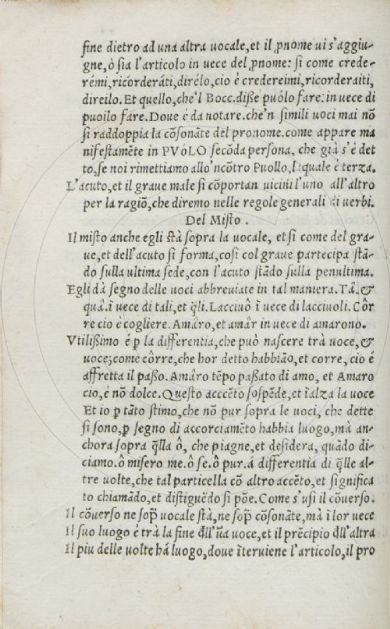 fine dietro ad una altra vocale, et il ꝓnome ui s'aggiu-
gne, ò sia l'articolo in uece del ꝓnome: si come crede-
rémi, ricorderáti, dirélo, cio è credereimi, ricorderaiti,
direilo. Et quello, che'l Bocc. disse puólo fare: in uece di
puoilo fare. Doue è da notare. che'n simili uoci mai nõ
si raddoppia la cõsonãte del pronome. come appare ma
nifestamẽte in PVÓLO secõda persona, che già s'è det
to, se noi rimettiamo allo'ncõtro Puollo. Lquale è terza.
L'acuto, et il graue male si cõportan uicini l'uno all'altro
per la ragiõ, che diremo nelle regole generali di uerbi.
Del Misto.
Il misto anche egli stà sopra la uocale, et si come del gra-
ue, et dell'acuto si forma, così col graue partecipa stã-
do sulla ultima sede, con l'acuto stãdo sulla penultima.
Egli dà segno delle uoci abbreuiate in tal maniera. Tâ. &
quâ. ĩ uece di tali, et q̃li. Lacciuô ĩ uece di lacciuoli. Côr
re cio è cogliere. Amâro, et amâr in uece di amarono.
Vtilißimo è ꝑ la differentia, che può nascere trà uoce, &
uoce; come côrre, che hor detto habbião, et corre, cio è
affretta il paßo. Amâro tẽpo paßato di amo, et Amaro
cio, è nõ dolce. Questo accẽto sospẽde, et ĩalza la uoce
Et io ꝑ tãto stimo, che nõ pur sopra le uoci, che dette
si sono, ꝑ segno di accorciamẽto habbia luogo, mà an-
chora sopra q̃lla ô, che piagne, et desidera, quãdo di-
ciamo. ô misero me. ô se. ô pur. á differentia di q̃lle al-
tre uolte, che tal particella cõ altro accẽto, et significa
to chiamãdo, et distiguẽdo si põe. Come s'usi il cõuerso.
Il cõuerso ne sop̃ uocale stà, ne sop̃ cõsonãte, mà ĩ lor uece
Il suo luogo è trà la fine d̃ll'ũa uoce, et il prẽcipio d̃ll'altra
Il piu delle uolte há luogo, doue ĩteruiene l'articolo, il pro